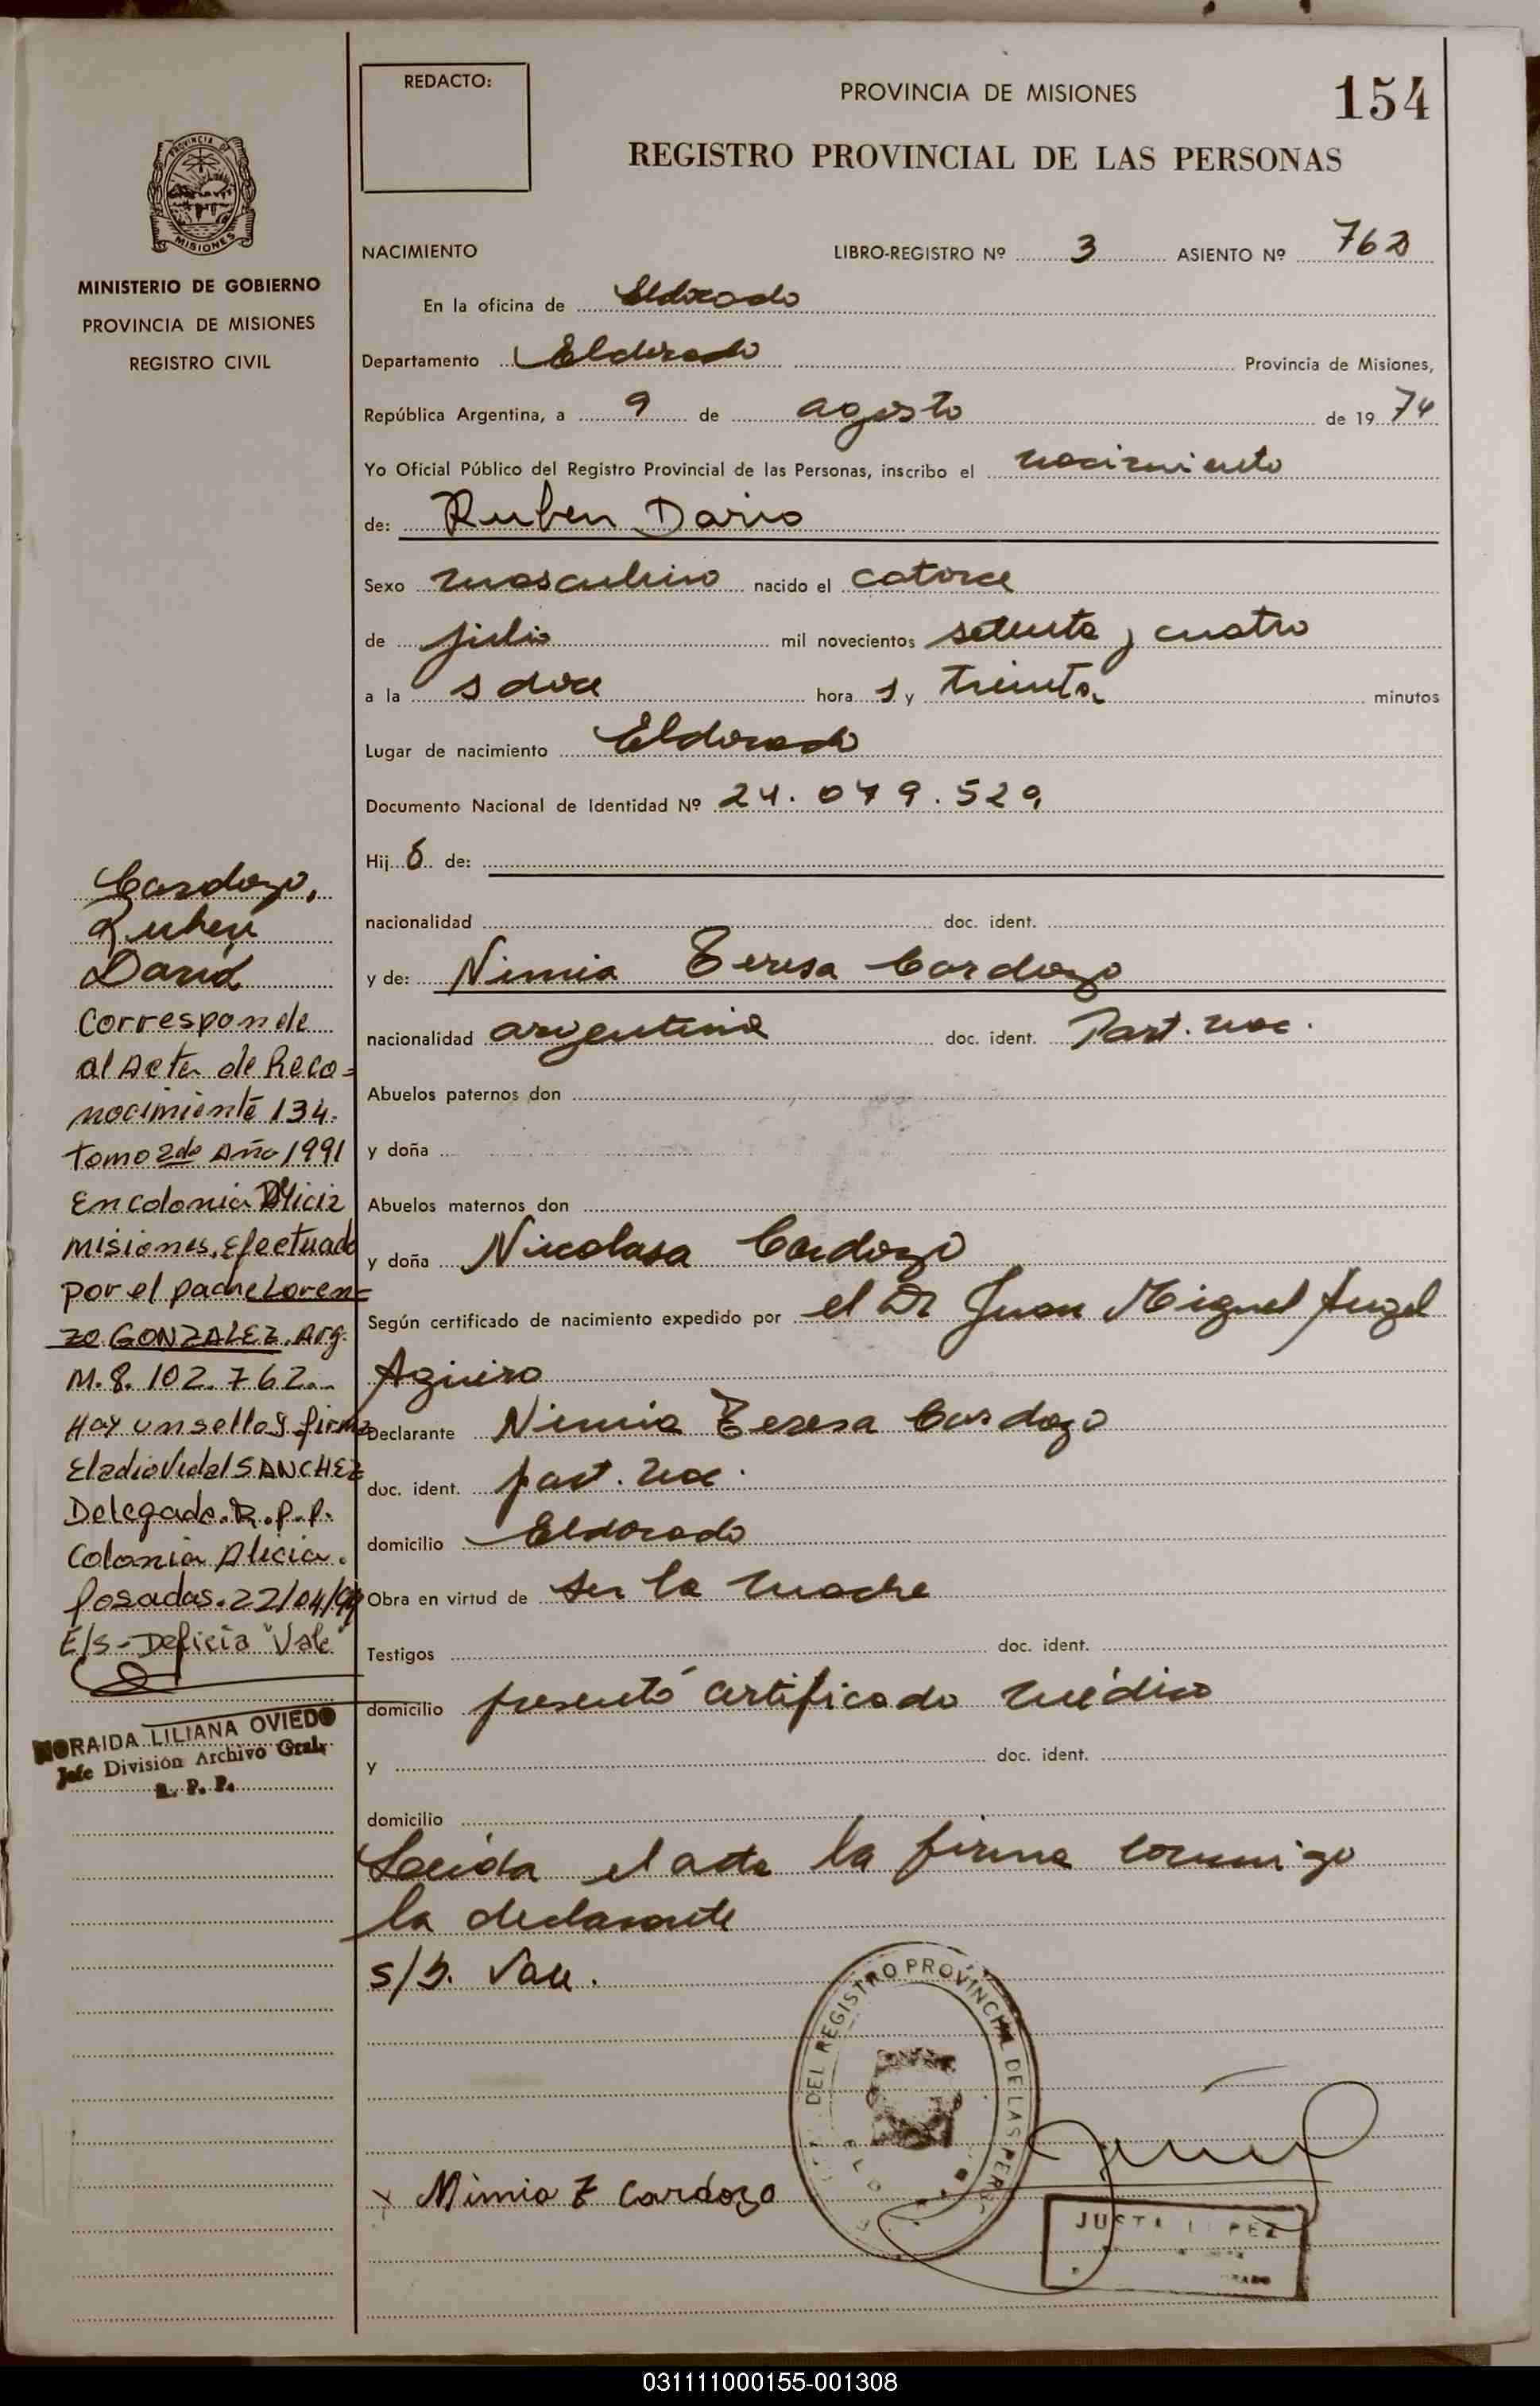 154
REDACTO:
PROVINCIA DE MISIONES
REGISTRO PROVINCIAL DE LAS PERSONAS
PROVINCIA DE
MISIONES
MINISTERIO DE GOBIERNO
PROVINCIA DE MISIONES
REGISTRO CIVIL
NACIMIENTO LIBRO-REGISTRO Nº 3 ASIENTO Nº 762
En la oficina de Eldorado
Departamento Eldorado Provincia de Misiones,
República Argentina, a 9 de agosto de 19 74
Yo Oficial Público del Registro Provincial de las Personas, inscribo el nacimiento
de: Ruben Dario
Sexo masculino nacido el catorce
de julio mil novecientos setenta y cuatro
a la s doce hora s y treinta minutos
Lugar de nacimiento Eldorado
Documento Nacional de Identidad Nº 24.079.529
Hij o de:
nacionalidad doc. ident.
y de: Nimia Teresa Cardozo
nacionalidad argentina doc. ident. Part. nac.
Abuelos paternos don
y doña
Abuelos maternos don
y doña Nicolasa Cardozo
Según certificado de nacimiento expedido por el Dr Juan Miguel Angel
Aguiro
Declarante Nimia Teresa Cardozo
doc. ident. part. nac.
domicilio Eldorado
Obra en virtud de ser la madre
Testigos doc. ident.
domicilio presentó certificado médico
y doc. ident.
domicilio
Leida el acta la firma conmigo
la declarante
s/b. Vale.
x Nimia T Cardozo
DEL REGISTRO PROVINCIAL DE LAS PERS
JUSTA LOPEZ
Cardozo,
Ruben
Dario
Corresponde
al Acta de Reco=
nocimiento 134.
tomo 2do Año 1991
En colonia Alicia
misiones, efectuado
por el padre Loren=
zo GONZALEZ. Arg.
M. 8. 102. 762.
Hay un sello y firma
Eladio Vidal SANCHEZ
Delegado. R. p. p.
Colonia Alicia.
Posadas. 22/04/94
E/S - Deficia "Vale"
NORAIDA LILIANA OVIEDO
Jefe División Archivo Gral.
R. P. P.
031111000155-001308